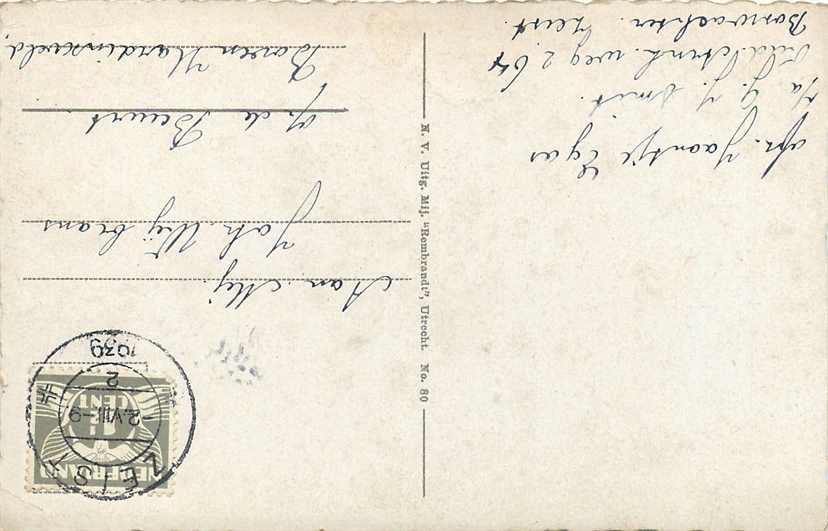 NEDERLAND
1½
CENT
ZEIST
-2.VIII.-9
2
1939
N. V. Uitg. Mij. "Rembrandt", Utrecht. No. 80
Aan Mej.
Joh. Wijbrans
op de Buurt.
Boven Hardinxveld,
afz. Jaantje Egas
p/a G. J. Smit.
Oud. Arnh. weg 264
Boswachter. Zeist.